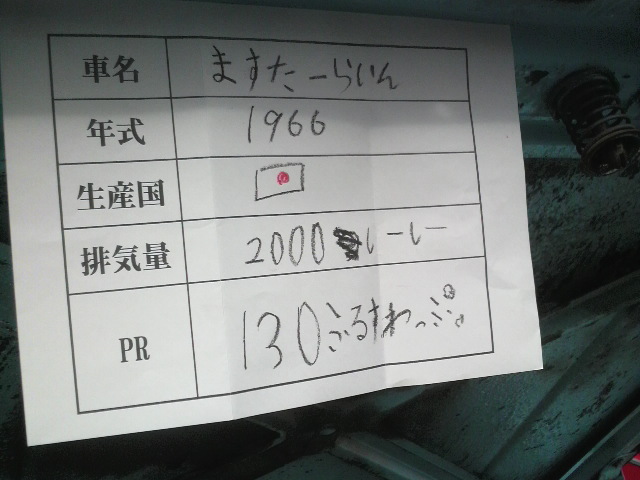 車名 ますたーらいん
年式 1966
生産国
排気量 2000 しーしー
PR 130ふるすわっぷ。